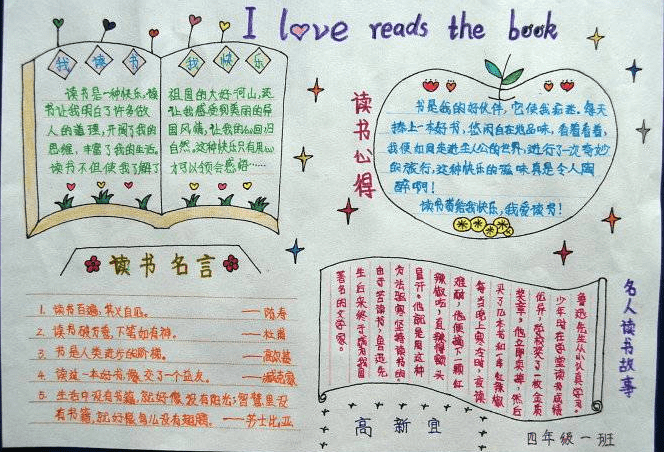 I love reads the book
我读书 我快乐
读书是一种快乐,读
书让我明白了许多做
人的道理,开阔了我的
思维,丰富了我的生活。
读书不但使我了解了
祖国的大好河山,还
让我感质到美丽的异
国风情,让我的心回归
自然,这种快乐只有用心
才可以领会感悟……
读书心得
书是我的好伙伴,它使我着迷。每天
捧上一本好书,悠闲自在地品味,看着看着,
我便如同走进主人公的世界,进行了一次奇妙
的旅行,这种快乐的滋味真是令人陶
醉啊!
读书带给我快乐,我爱读书!
读书名言
1. 读书百遍,其义自见。 ——陈寿
2. 读书破万卷,下笔如有神。 ——杜甫
3. 书是人类进步的阶梯。 ——高尔基
4. 读过一本好书,像交了一个益友。 ——臧克家
5. 生活中没有书籍,就好像没有阳光;智慧里没
有书籍,就好像鸟儿没有翅膀。 ——莎士比亚
名人读书故事
鲁迅先生从小认真学习。
少年时在江南水师学堂读书成绩
优异,学校奖了一枚金质
奖章,他立即卖掉,然后
买了几本书和一串红辣椒
每当晚上寒冷时,夜读
难耐,他便摘下一颗红
辣椒吃,直辣得额头
冒汗。他就是用这种
方法驱寒坚持读书的,
由于苦读书,鲁迅先
生后来终于成为我国
著名的文学家。
高新宜
四年级一班